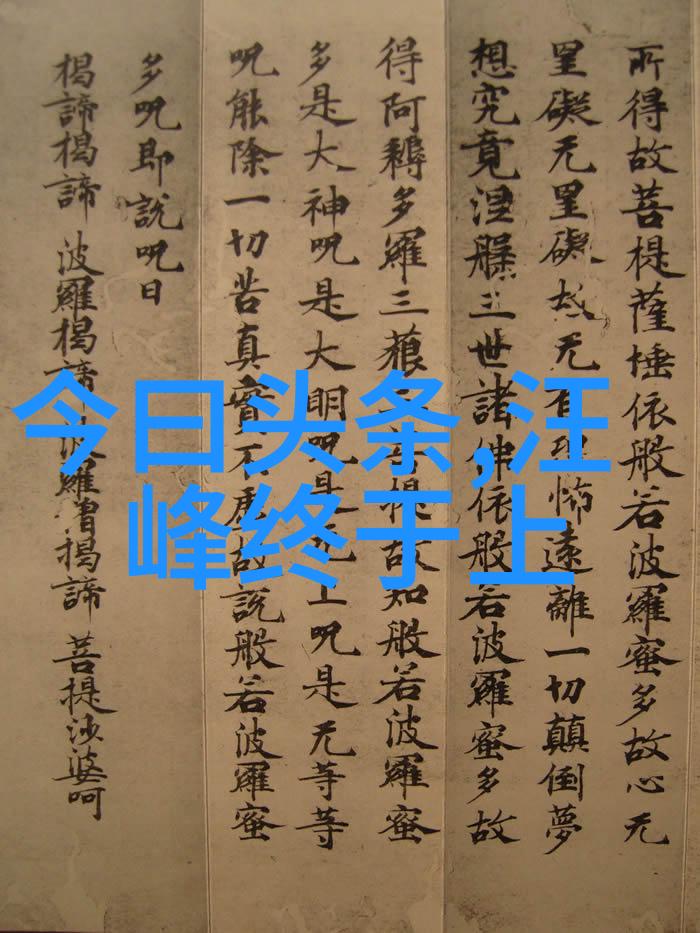 所得故菩提薩埵依般若波羅蜜多故心无
罣礙无罣礙故无有恐怖遠離一切顛倒夢
想究竟涅槃三世諸佛依般若波羅蜜多故
得阿耨多羅三藐三菩提故知般若波羅蜜
多是大神呪是大明呪是无上呪是无等等
呪能除一切苦真實不虛故說般若波羅蜜
多呪即說呪曰
揭諦揭諦 波羅揭諦 波羅僧揭諦 菩提沙婆呵
今日头条,汪
峰终于上